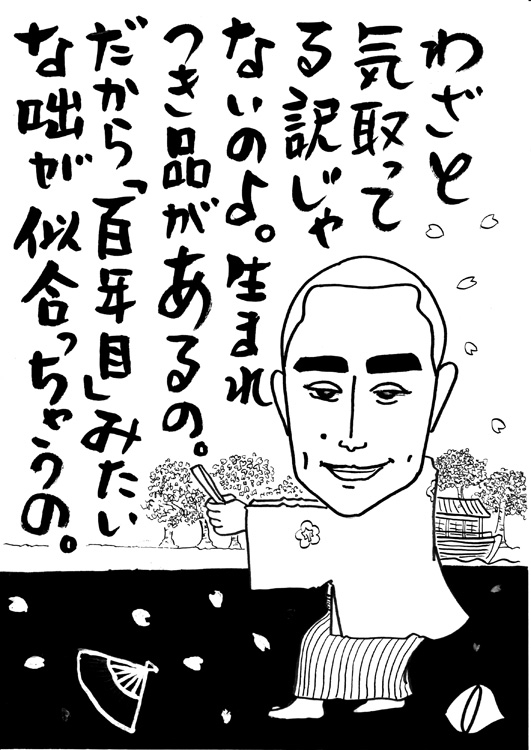 わざと
気取って
る訳じゃ
ないのよ。生まれ
つき品があるの。
だから「百年目」みたい
な咄が似合っちゃうの。